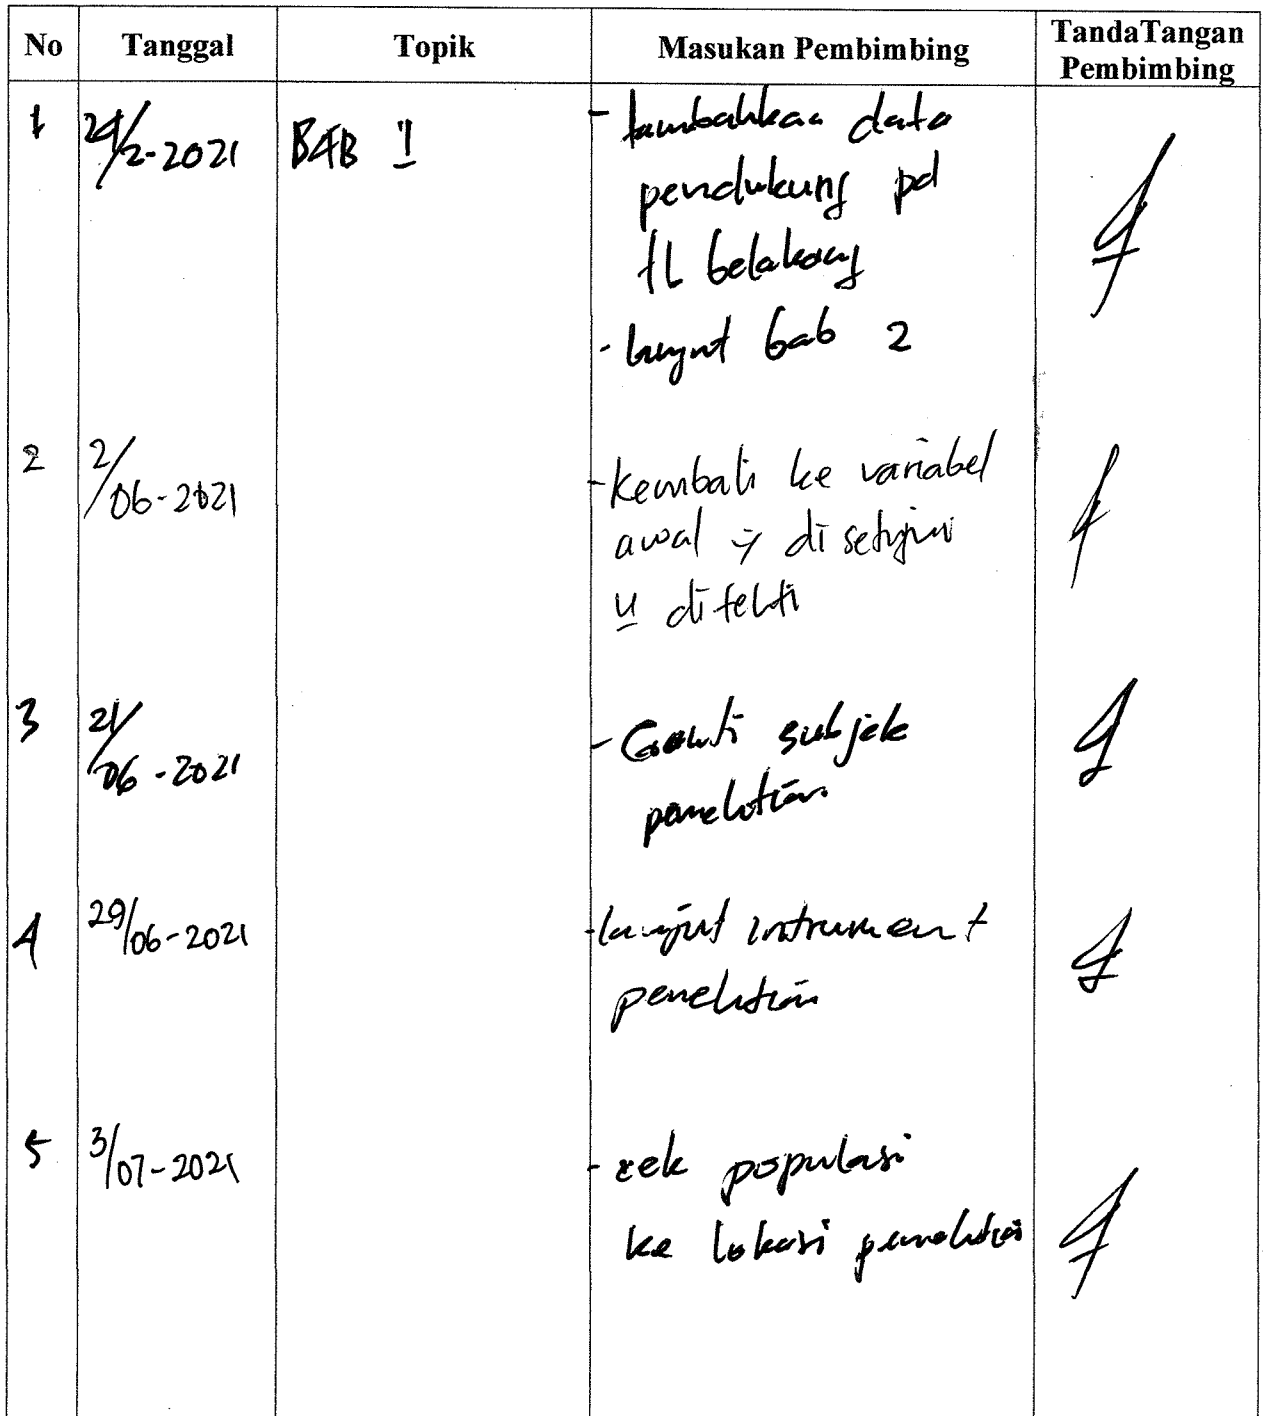 No Tanggal Topik Masukan Pembimbing TandaTangan Pembimbing
1 24/2-2021 BAB II - tambahkan data
pendukung pd
belakang
- lanjut bab 2
2 2/06-2021 - Kembali ke variabel
awal => di setujui
u diteliti
3 21/06-2021 - Ganti subjek
penelitian
4 29/06-2021 - lanjut intrument
penelitian
5 3/07-2021 - cek populasi
ke lokasi penelitian